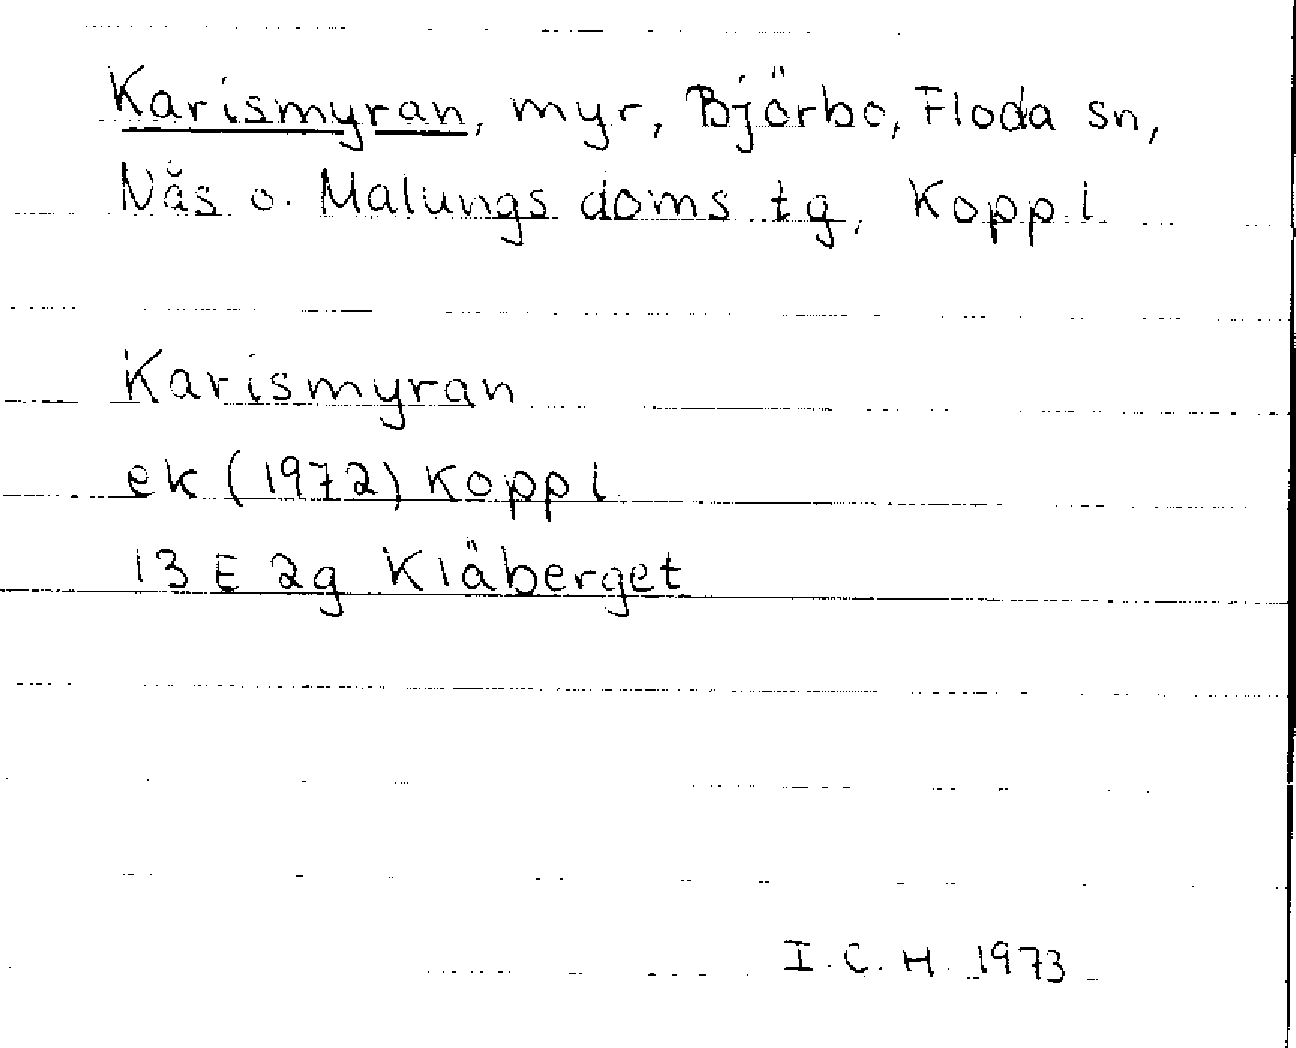 Karismyran, myr, Björbo, Floda sn,
Nås o. Malungs doms tg, Kopp l
Karismyran
ek (1972) Kopp l
13 E 2g Kläberget
I. C. H. 1973